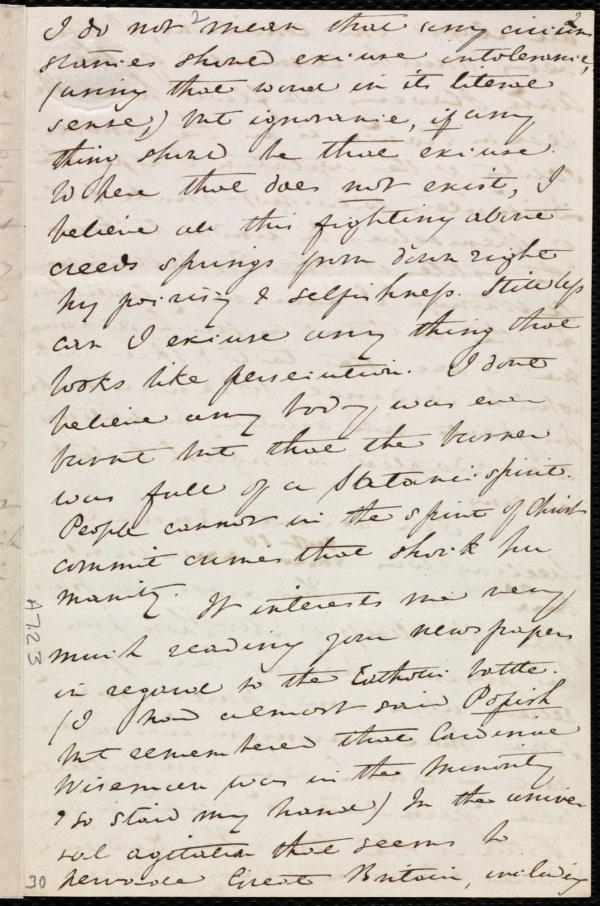 2
2
I do not mean that any circum
stances should excuse intolerance,
(using that word in its literal
sense,) but ignorance, if any
thing should be that excuse.
Where that does not exist, I
believe all this fighting about
creeds springs from downright
hypocrisy & selfishness. Still less
can I excuse any thing that
looks like persecution. I dont
believe any body was ever
burnt but that the burner
was full of a Satanic spirit.
People cannot in the spirit of Christ
commit crimes that shock hu
manity. It interests me very
much reading your newspapers
in regard to the Catholic battle.
(I had almost said Popish
but remembered that Cardinal
Wiseman was in the minority
& so staid my hand) In the univer
sal agitation that seems to
pervade Great Britain, including
A723
30